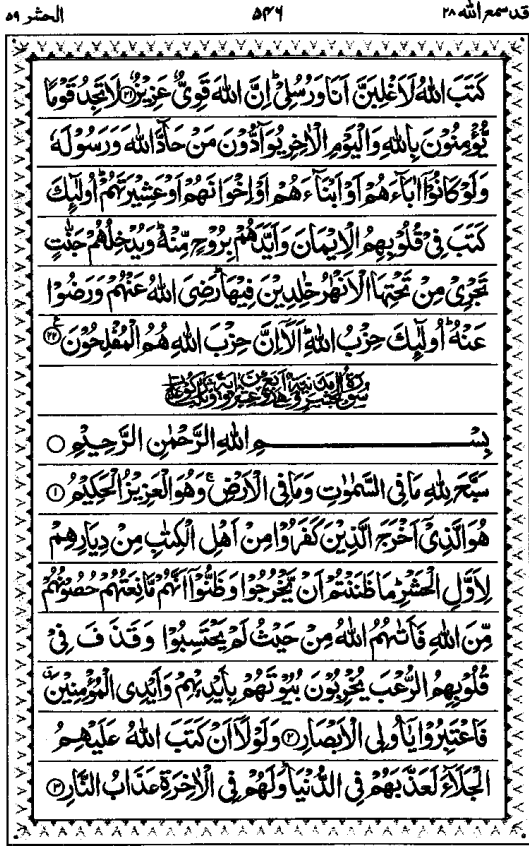 قد سمع الله ۲۸ ۵۴۶ الحشر ۵۹
كَتَبَ اللّٰهُ لَاَغْلِبَنَّ اَنَا وَرُسُلِیْ ؕ اِنَّ اللّٰهَ قَوِیٌّ عَزِیْزٌ ﴿۲۱﴾ لَا تَجِدُ قَوْمًا
یُّؤْمِنُوْنَ بِاللّٰهِ وَالْیَوْمِ الْاٰخِرِ یُوَآدُّوْنَ مَنْ حَآدَّ اللّٰهَ وَرَسُوْلَهٗ
وَلَوْ كَانُوْۤا اٰبَآءَهُمْ اَوْ اَبْنَآءَهُمْ اَوْ اِخْوَانَهُمْ اَوْ عَشِیْرَتَهُمْ ؕ اُولٰٓئِكَ
كَتَبَ فِیْ قُلُوْبِهِمُ الْاِیْمَانَ وَاَیَّدَهُمْ بِرُوْحٍ مِّنْهُ ؕ وَیُدْخِلُهُمْ جَنّٰتٍ
تَجْرِیْ مِنْ تَحْتِهَا الْاَنْهٰرُ خٰلِدِیْنَ فِیْهَا ؕ رَضِیَ اللّٰهُ عَنْهُمْ وَرَضُوْا
عَنْهُ ؕ اُولٰٓئِكَ حِزْبُ اللّٰهِ ؕ اَلَاۤ اِنَّ حِزْبَ اللّٰهِ هُمُ الْمُفْلِحُوْنَ ﴿۲۲﴾
بِسْمِ اللّٰهِ الرَّحْمٰنِ الرَّحِیْمِ
سَبَّحَ لِلّٰهِ مَا فِی السَّمٰوٰتِ وَمَا فِی الْاَرْضِ ۚ وَهُوَ الْعَزِیْزُ الْحَكِیْمُ ﴿۱﴾
هُوَ الَّذِیْۤ اَخْرَجَ الَّذِیْنَ كَفَرُوْا مِنْ اَهْلِ الْكِتٰبِ مِنْ دِیَارِهِمْ
لِاَوَّلِ الْحَشْرِ ؕ مَا ظَنَنْتُمْ اَنْ یَّخْرُجُوْا وَظَنُّوْۤا اَنَّهُمْ مَّانِعَتُهُمْ حُصُوْنُهُمْ
مِّنَ اللّٰهِ فَاَتٰىهُمُ اللّٰهُ مِنْ حَیْثُ لَمْ یَحْتَسِبُوْا وَقَذَفَ فِیْ
قُلُوْبِهِمُ الرُّعْبَ یُخْرِبُوْنَ بُیُوْتَهُمْ بِاَیْدِیْهِمْ وَاَیْدِی الْمُؤْمِنِیْنَ ۗ
فَاعْتَبِرُوْا یٰۤاُولِی الْاَبْصَارِ ﴿۲﴾ وَلَوْلَاۤ اَنْ كَتَبَ اللّٰهُ عَلَیْهِمُ
الْجَلَآءَ لَعَذَّبَهُمْ فِی الدُّنْیَا ؕ وَلَهُمْ فِی الْاٰخِرَةِ عَذَابُ النَّارِ ﴿۳﴾